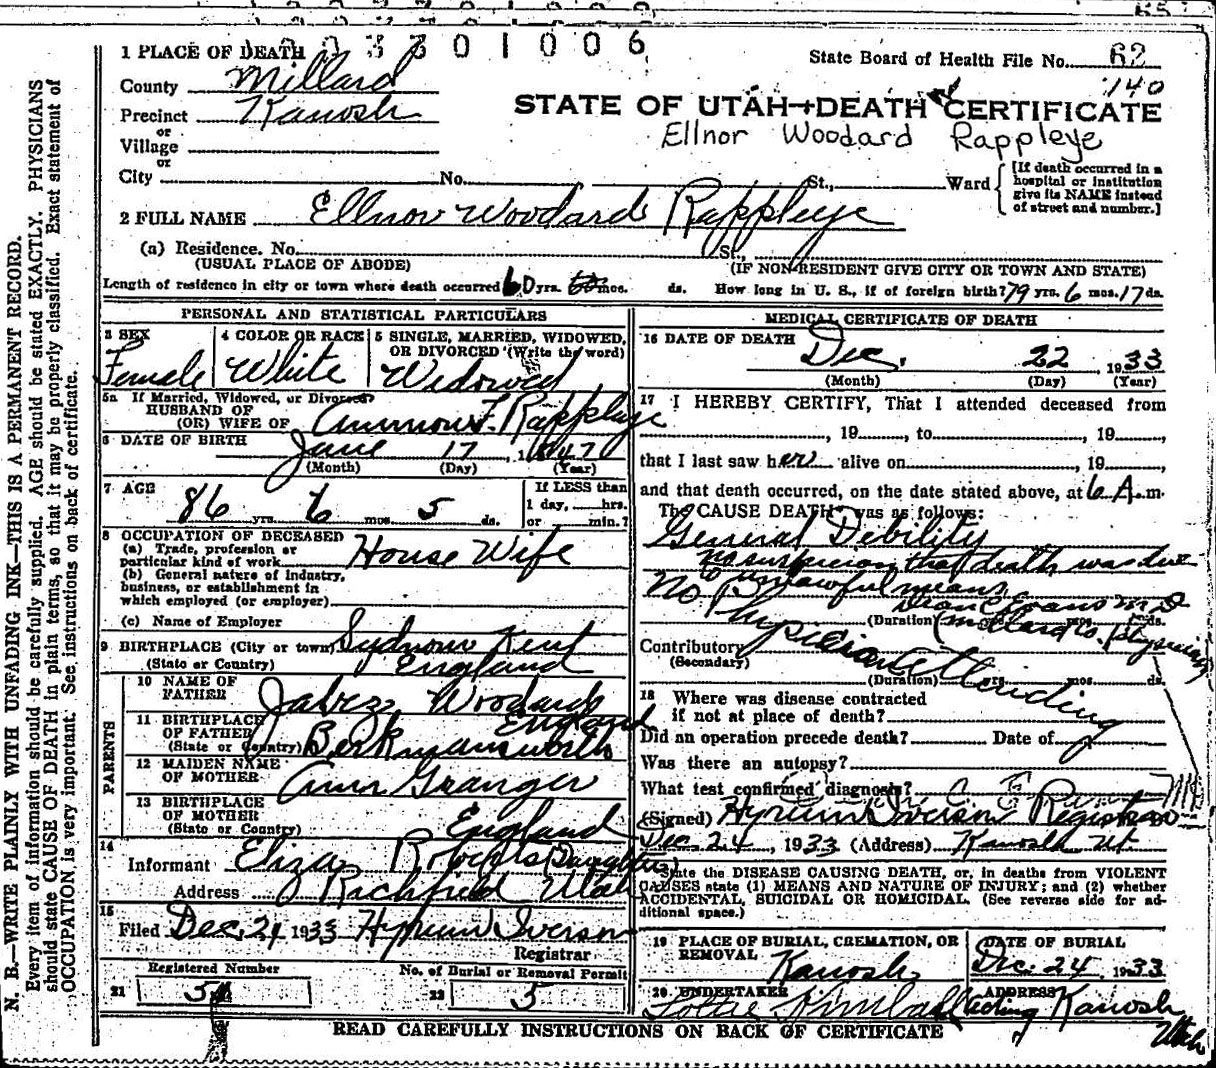 3 3 0 1 0 0 6
1 PLACE OF DEATH
State Board of Health File No. 62
140
County Millard
Precinct Kanosh
or
Village
or
City No. St., Ward
STATE OF UTAH—DEATH CERTIFICATE
Ellnor Woodard Rappleye
[If death occurred in a
hospital or institution
give its NAME instead
of street and number.]
2 FULL NAME Ellnor Woodard Rappleye
(a) Residence. No. St.,
(USUAL PLACE OF ABODE) (IF NON-RESIDENT GIVE CITY OR TOWN AND STATE)
Length of residence in city or town where death occurred 60 yrs. mos. ds. How long in U. S., if of foreign birth? 79 yrs. 6 mos. 17 ds.
PERSONAL AND STATISTICAL PARTICULARS
3 SEX 4 COLOR OR RACE 5 SINGLE, MARRIED, WIDOWED,
OR DIVORCED (Write the word)
Female White Widowed
5a If Married, Widowed, or Divorced
HUSBAND OF
(OR) WIFE OF Ammon F. Rappleye
6 DATE OF BIRTH
June 17, 1847
(Month) (Day) (Year)
7 AGE If LESS than
86 yrs. 6 mos. 5 ds. 1 day, hrs.
or min.?
8 OCCUPATION OF DECEASED
(a) Trade, profession or
particular kind of work House Wife
(b) General nature of industry,
business, or establishment in
which employed (or employer)
(c) Name of Employer
9 BIRTHPLACE (City or town) Sydnour Kent
(State or Country) England
PARENTS
10 NAME OF
FATHER Jabez Woodard
11 BIRTHPLACE
OF FATHER England
(State or Country) Berkmansworth
12 MAIDEN NAME
OF MOTHER Ann Granger
13 BIRTHPLACE
OF MOTHER
(State or Country) England
14
Informant Eliza Roberts (Daughter)
Address Richfield Utah
15
Filed Dec. 24 1933 Hyrum Iverson
Registrar
Registered Number No. of Burial or Removal Permit
21 51 22 5
MEDICAL CERTIFICATE OF DEATH
16 DATE OF DEATH
Dec. 22, 1933
(Month) (Day) (Year)
17 I HEREBY CERTIFY, That I attended deceased from
, 19 , to , 19
that I last saw her alive on , 19
and that death occurred, on the date stated above, at 6 A. m.
The CAUSE DEATH was as follows:
General Debility
no suspicion that death was due
to unlawful means
No Physician Attending
Dean Evans M D
(Duration) (Millard Co. Physician) ds.
Contributory
(Secondary)
(Duration) yrs. mos. ds.
18 Where was disease contracted
if not at place of death?
Did an operation precede death? Date of
Was there an autopsy?
What test confirmed diagnosis?
(Signed) Hyrum Iverson Registrar
Dec. 24, 1933 (Address) Kanosh Ut.
State the DISEASE CAUSING DEATH, or, in deaths from VIOLENT
CAUSES state (1) MEANS AND NATURE OF INJURY; and (2) whether
ACCIDENTAL, SUICIDAL OR HOMICIDAL. (See reverse side for ad-
ditional space.)
19 PLACE OF BURIAL, CREMATION, OR DATE OF BURIAL
REMOVAL Kanosh Dec. 24 1933
20 UNDERTAKER ADDRESS
Lottie Kimball Acting Kanosh
Utah
READ CAREFULLY INSTRUCTIONS ON BACK OF CERTIFICATE
N. B.—WRITE PLAINLY WITH UNFADING INK—THIS IS A PERMANENT RECORD.
Every item of information should be carefully supplied. AGE should be stated EXACTLY. PHYSICIANS
should state CAUSE OF DEATH in plain terms, so that it may be properly classified. Exact statement of
OCCUPATION is very important. See instructions on back of certificate.